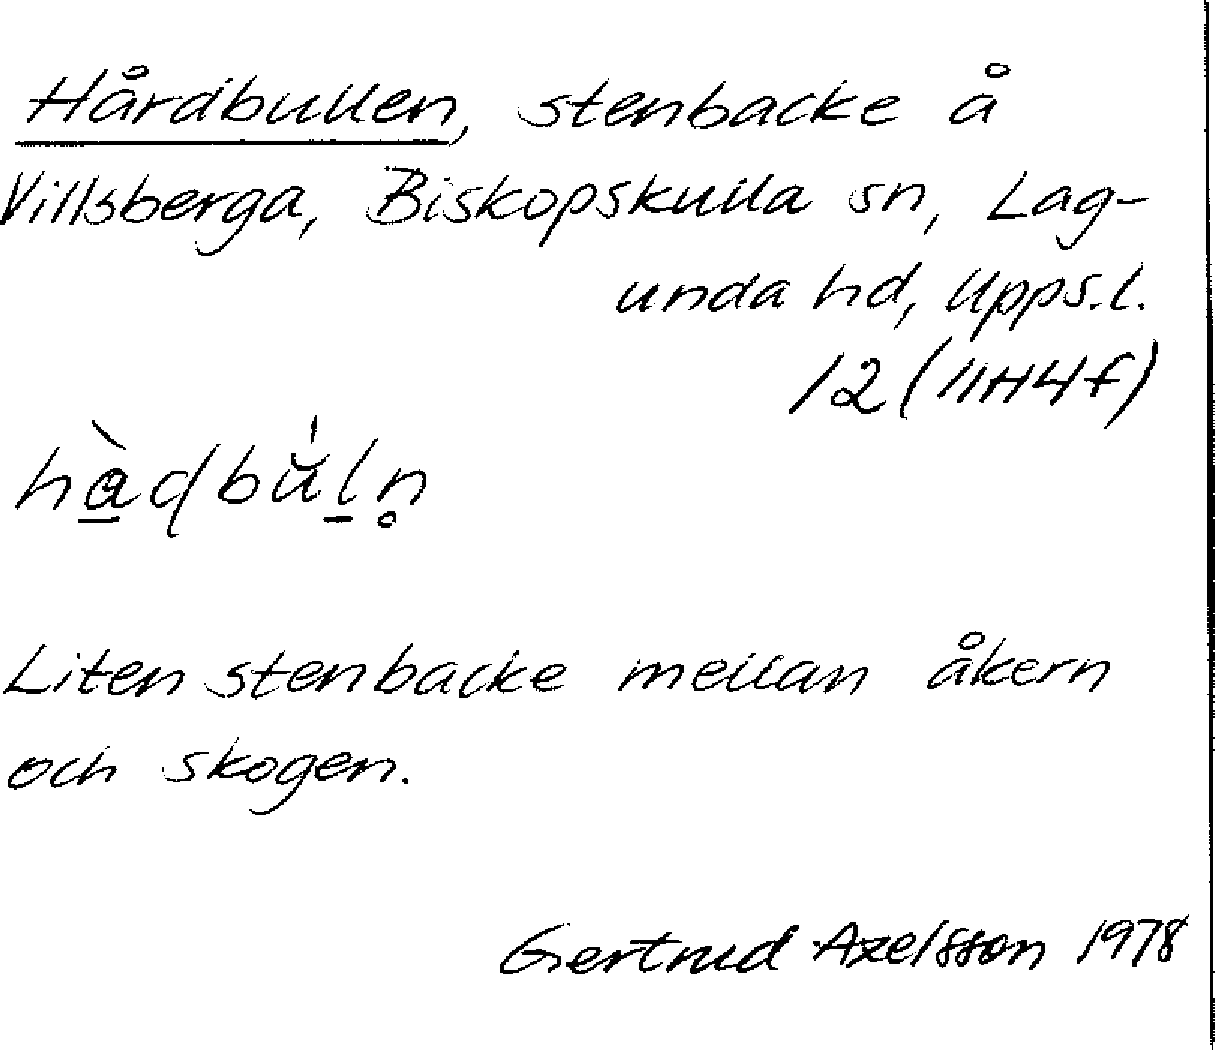 Hårdbullen, stenbacke å
Villsberga, Biskopskulla sn, Lag-
unda hd, Upps.l.
12 (11H4f)
hàdbu̍ln̥
Liten stenbacke mellan åkern
och skogen.
Gertrud Axelsson 1978